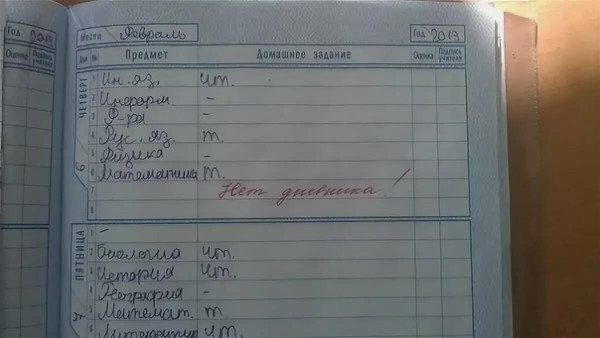 Год 2019 Месяц Февраль Год 2019
Оценка Подпись учителя Дни № Предмет Домашнее задание Оценка Подпись учителя
ЧЕТВЕРГ
1 Ин. яз. чт.
2 Информ –
3 Ф-ра –
4 Рус. яз. т.
5 Физика –
6 Математика т.
7 Нет дневника!
8
ПЯТНИЦА
1 –
2 Биология чт.
3 История чт.
4 География –
5 Математ. т.
6 Литература чт.